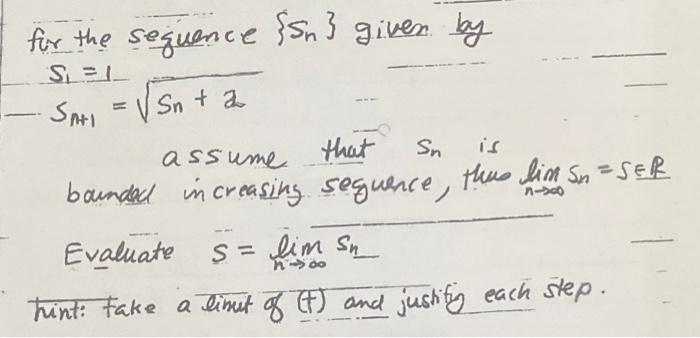 for the sequence {Sn} given by
S1 = 1
Sn+1 = √Sn + 2
assume that Sn is
bounded increasing sequence, thus lim n→∞ Sn = S ∈ ℝ
Evaluate S = lim n→∞ Sn
hint: take a limit of (†) and justify each step.